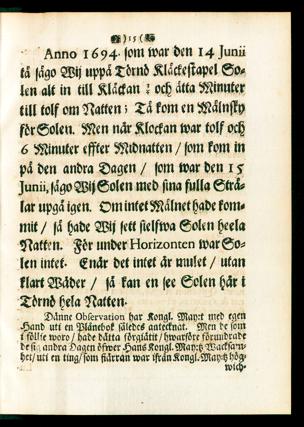 )15(
Anno 1694. som war den 14 Junii
tå sågo Wij uppå Törnö Kläckestapel So-
len alt in till Kläckan ½ och åtta Minuter
till tolf om Natten; Tå kom en Målnsky
för Solen. Men når Klockan war tolf och
6 Minuter effter Midnatten / som kom in
på den andra Dagen / som war den 15
Junii, sågo Wij Solen med sina fulla Strå-
lar upgå igen. Om intet Målnet hade kom-
mit / så hade Wij sett sielfwa Solen heela
Natten. För under Horizonten war So-
len intet. Enär det intet är mulet / utan
klart Wäder / så kan en see Solen här i
Törnö hela Natten.
Dänne Observation har Kongl. May:t med egen
Hand uti en Plånebok således antecknat. Men de som
i följe woro / hade dätta förgiätit / hwarföre förundrade
de sig andra Dagen öfwer Hans Kongl. May:tz Wacksam-
het / uti en ting / som fiärran war ifrån Kongl. May:tz hög-
wich-